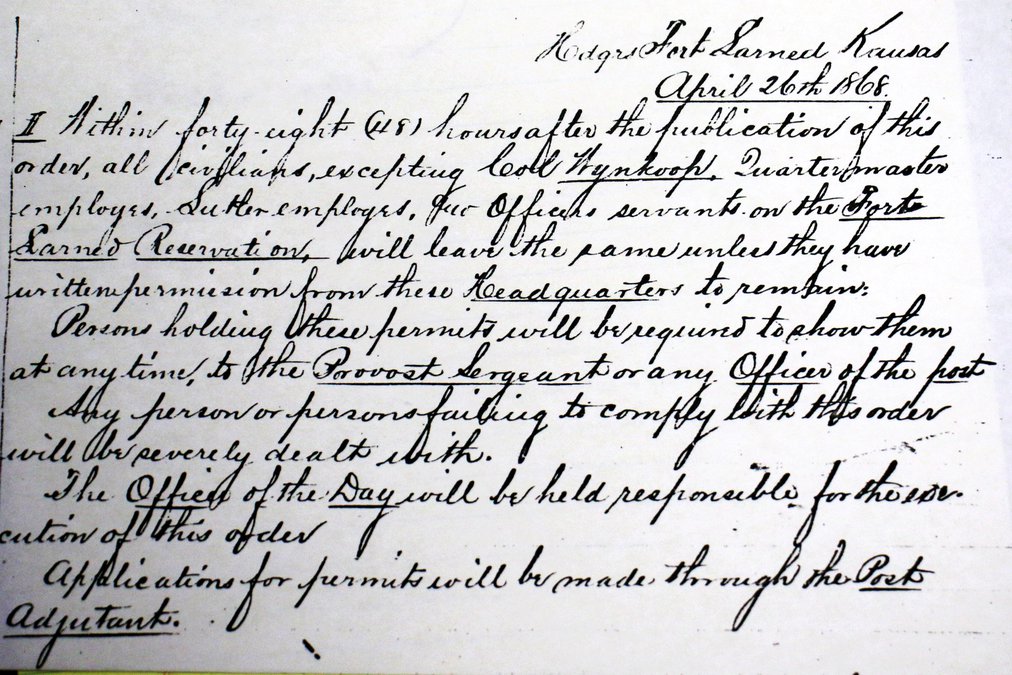 Hdqrs Fort Larned Kansas
April 26th 1868.
II Within forty-eight (48) hours after the publication of this
order, all civilians, excepting Col Wynkoop, Quartermaster
employes, Sutler employes, Officers servants on the Fort
Larned Reservation, will leave the same unless they have
written permission from these Headquarters to remain:
Persons holding these permits will be required to show them
at any time, to the Provost Sergeant or any Officer of the post
Any person or persons failing to comply with this order
will be severely dealt with.
The Officer of the Day will be held responsible for the exe-
cution of this order
Applications for permits will be made through the Post
Adjutant.